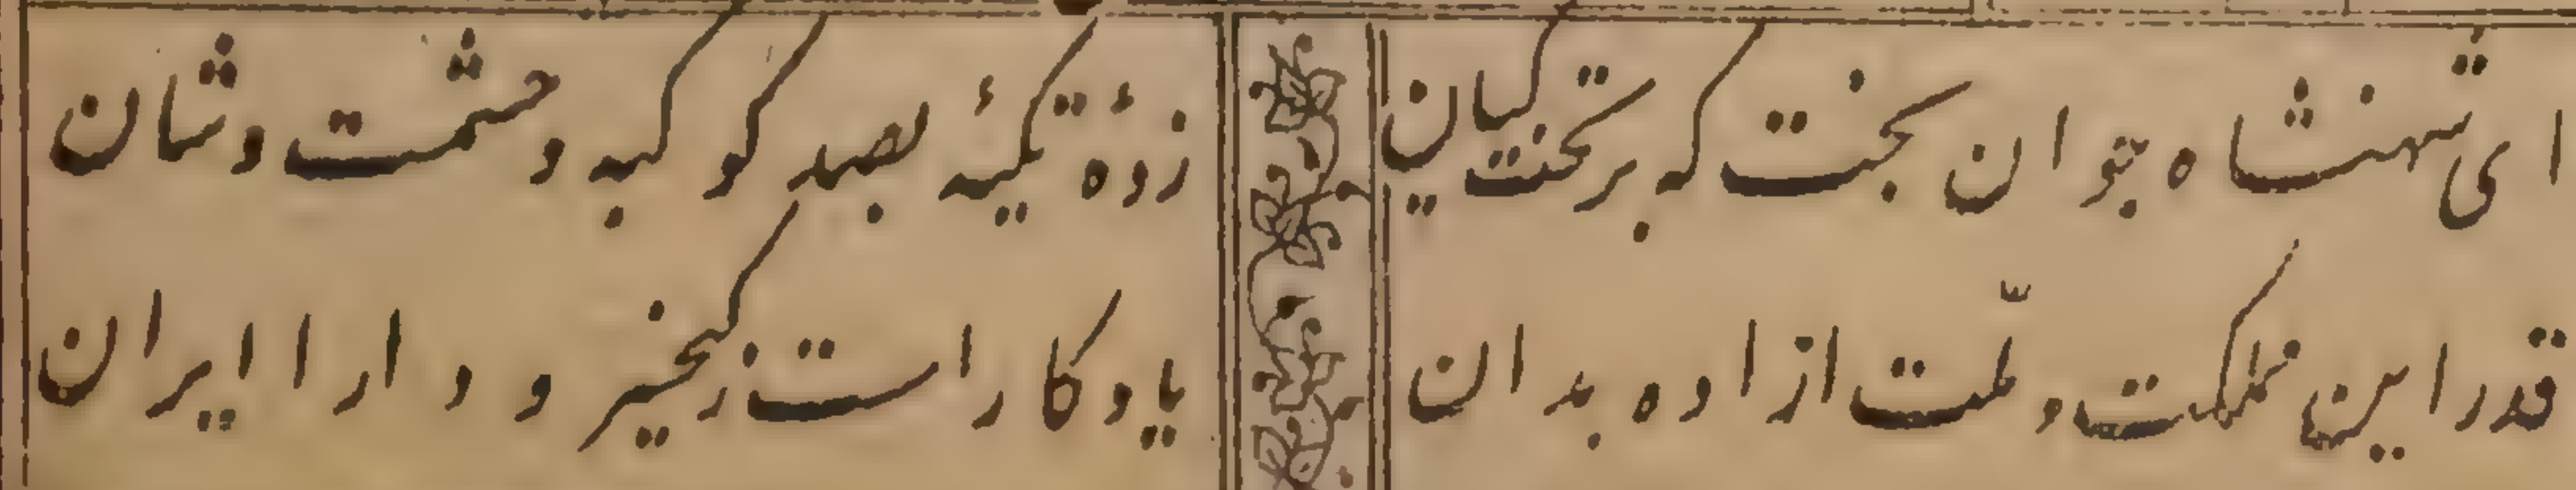 ای شهنشاه جوان بخت که بر تخت کیان
زدۀ تکیۀ بصد کوکبه و حشمت و شان
قدر این مملکت و ملّت ازاده بدان
یادکار است ز کیخسر و و دارا ایران